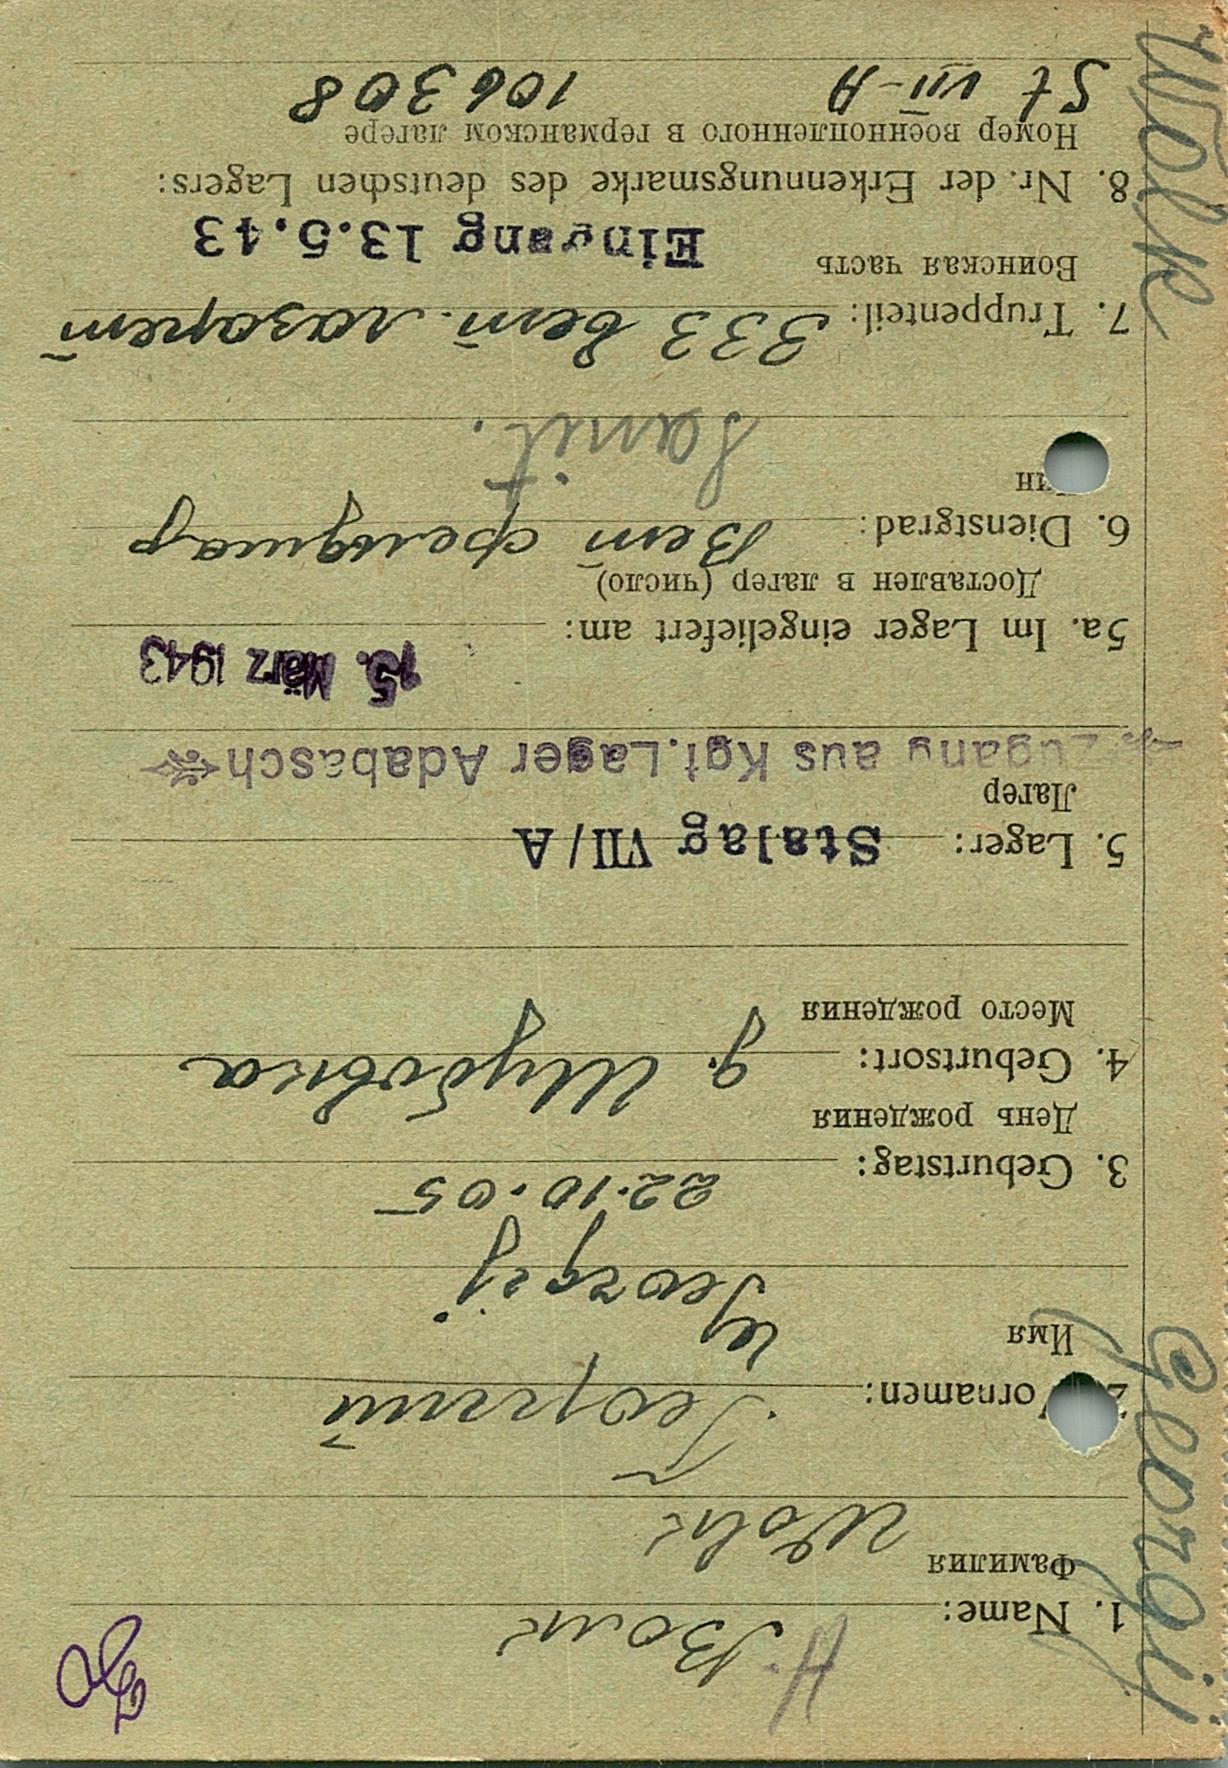 H.
1. Name: Волк
Фамилия
Wolk
2. Vornamen: Георгий
Имя
Georgij
3. Geburtstag: 22.10.05
День рождения
4. Geburtsort: д. Шубовка
Место рождения
5. Lager: Stalag VII/A
Лагер
Zugang aus Kgf. Lager Adabasch
15. März 1943
5a. Im Lager eingeliefert am:
Доставлен в лагер (число)
6. Dienstgrad: Вет фельдшер
Чин
Sanit.
7. Truppenteil: 333 вет. лазарет
Воинская часть
Eingang 13.5.43
8. Nr. der Erkennungsmarke des deutschen Lagers:
Номер военнопленного в германском лагере
St VII-A 106308
Georgij Wolk